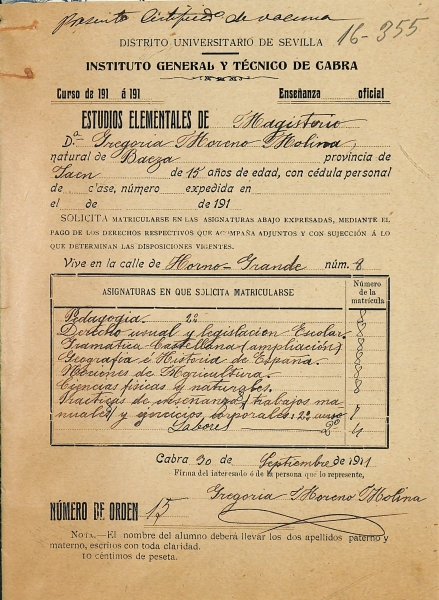 Presento Certificado de vacuna
16-355
DISTRITO UNIVERSITARIO DE SEVILLA
INSTITUTO GENERAL Y TÉCNICO DE CABRA
Curso de 191 á 191 Enseñanza oficial
ESTUDIOS ELEMENTALES DE Magisterio
D.ª Gregoria Moreno Molina,
natural de Baeza provincia de
Jaen de 15 años de edad, con cédula personal
de clase, número expedida en
el de de 191
SOLICITA MATRICULARSE EN LAS ASIGNATURAS ABAJO EXPRESADAS, MEDIANTE EL
PAGO DE LOS DERECHOS RESPECTIVOS QUE ACOMPAÑA ADJUNTOS Y CON SUJECCIÓN Á LO
QUE DETERMINAN LAS DISPOSICIONES VIGENTES.
Vive en la calle de Horno-Grande núm. 8
ASIGNATURAS EN QUE SOLICITA MATRICULARSE Número de la matrícula
Pedagogia. 2º 8
Derecho usual y legislacion Escolar. 8
Gramática Castellana (ampliación) 8
Geografía é Historia de España. 8
Nociones de Agricultura. 8
Ciencias físicas y naturales. 8
Prácticas de enseñanza, trabajos ma
nuales y ejercicios corporales: 2º curso 7
Labores 2º 4
Cabra 30 de Septiembre de 1911
Firma del interesado ó de la persona que lo represente,
Gregoria Moreno Molina
NÚMERO DE ORDEN 15
NOTA.—El nombre del alumno deberá llevar los dos apellidos paterno y
materno, escritos con toda claridad.
10 céntimos de peseta.